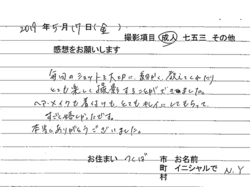 2019年5月17日(金)
撮影項目 成人 七五三 その他
感想をお願いします
毎回のショットを大切に、細かく、教えてくれたり
とても楽しく撮影することができました。
ヘア・メイクも着付けも、とてもキレイにしてもらって
すごく嬉しかったです。
本当にありがとうございました。
お住まい つくば 市 お名前
町 イニシャルで N.Y
村